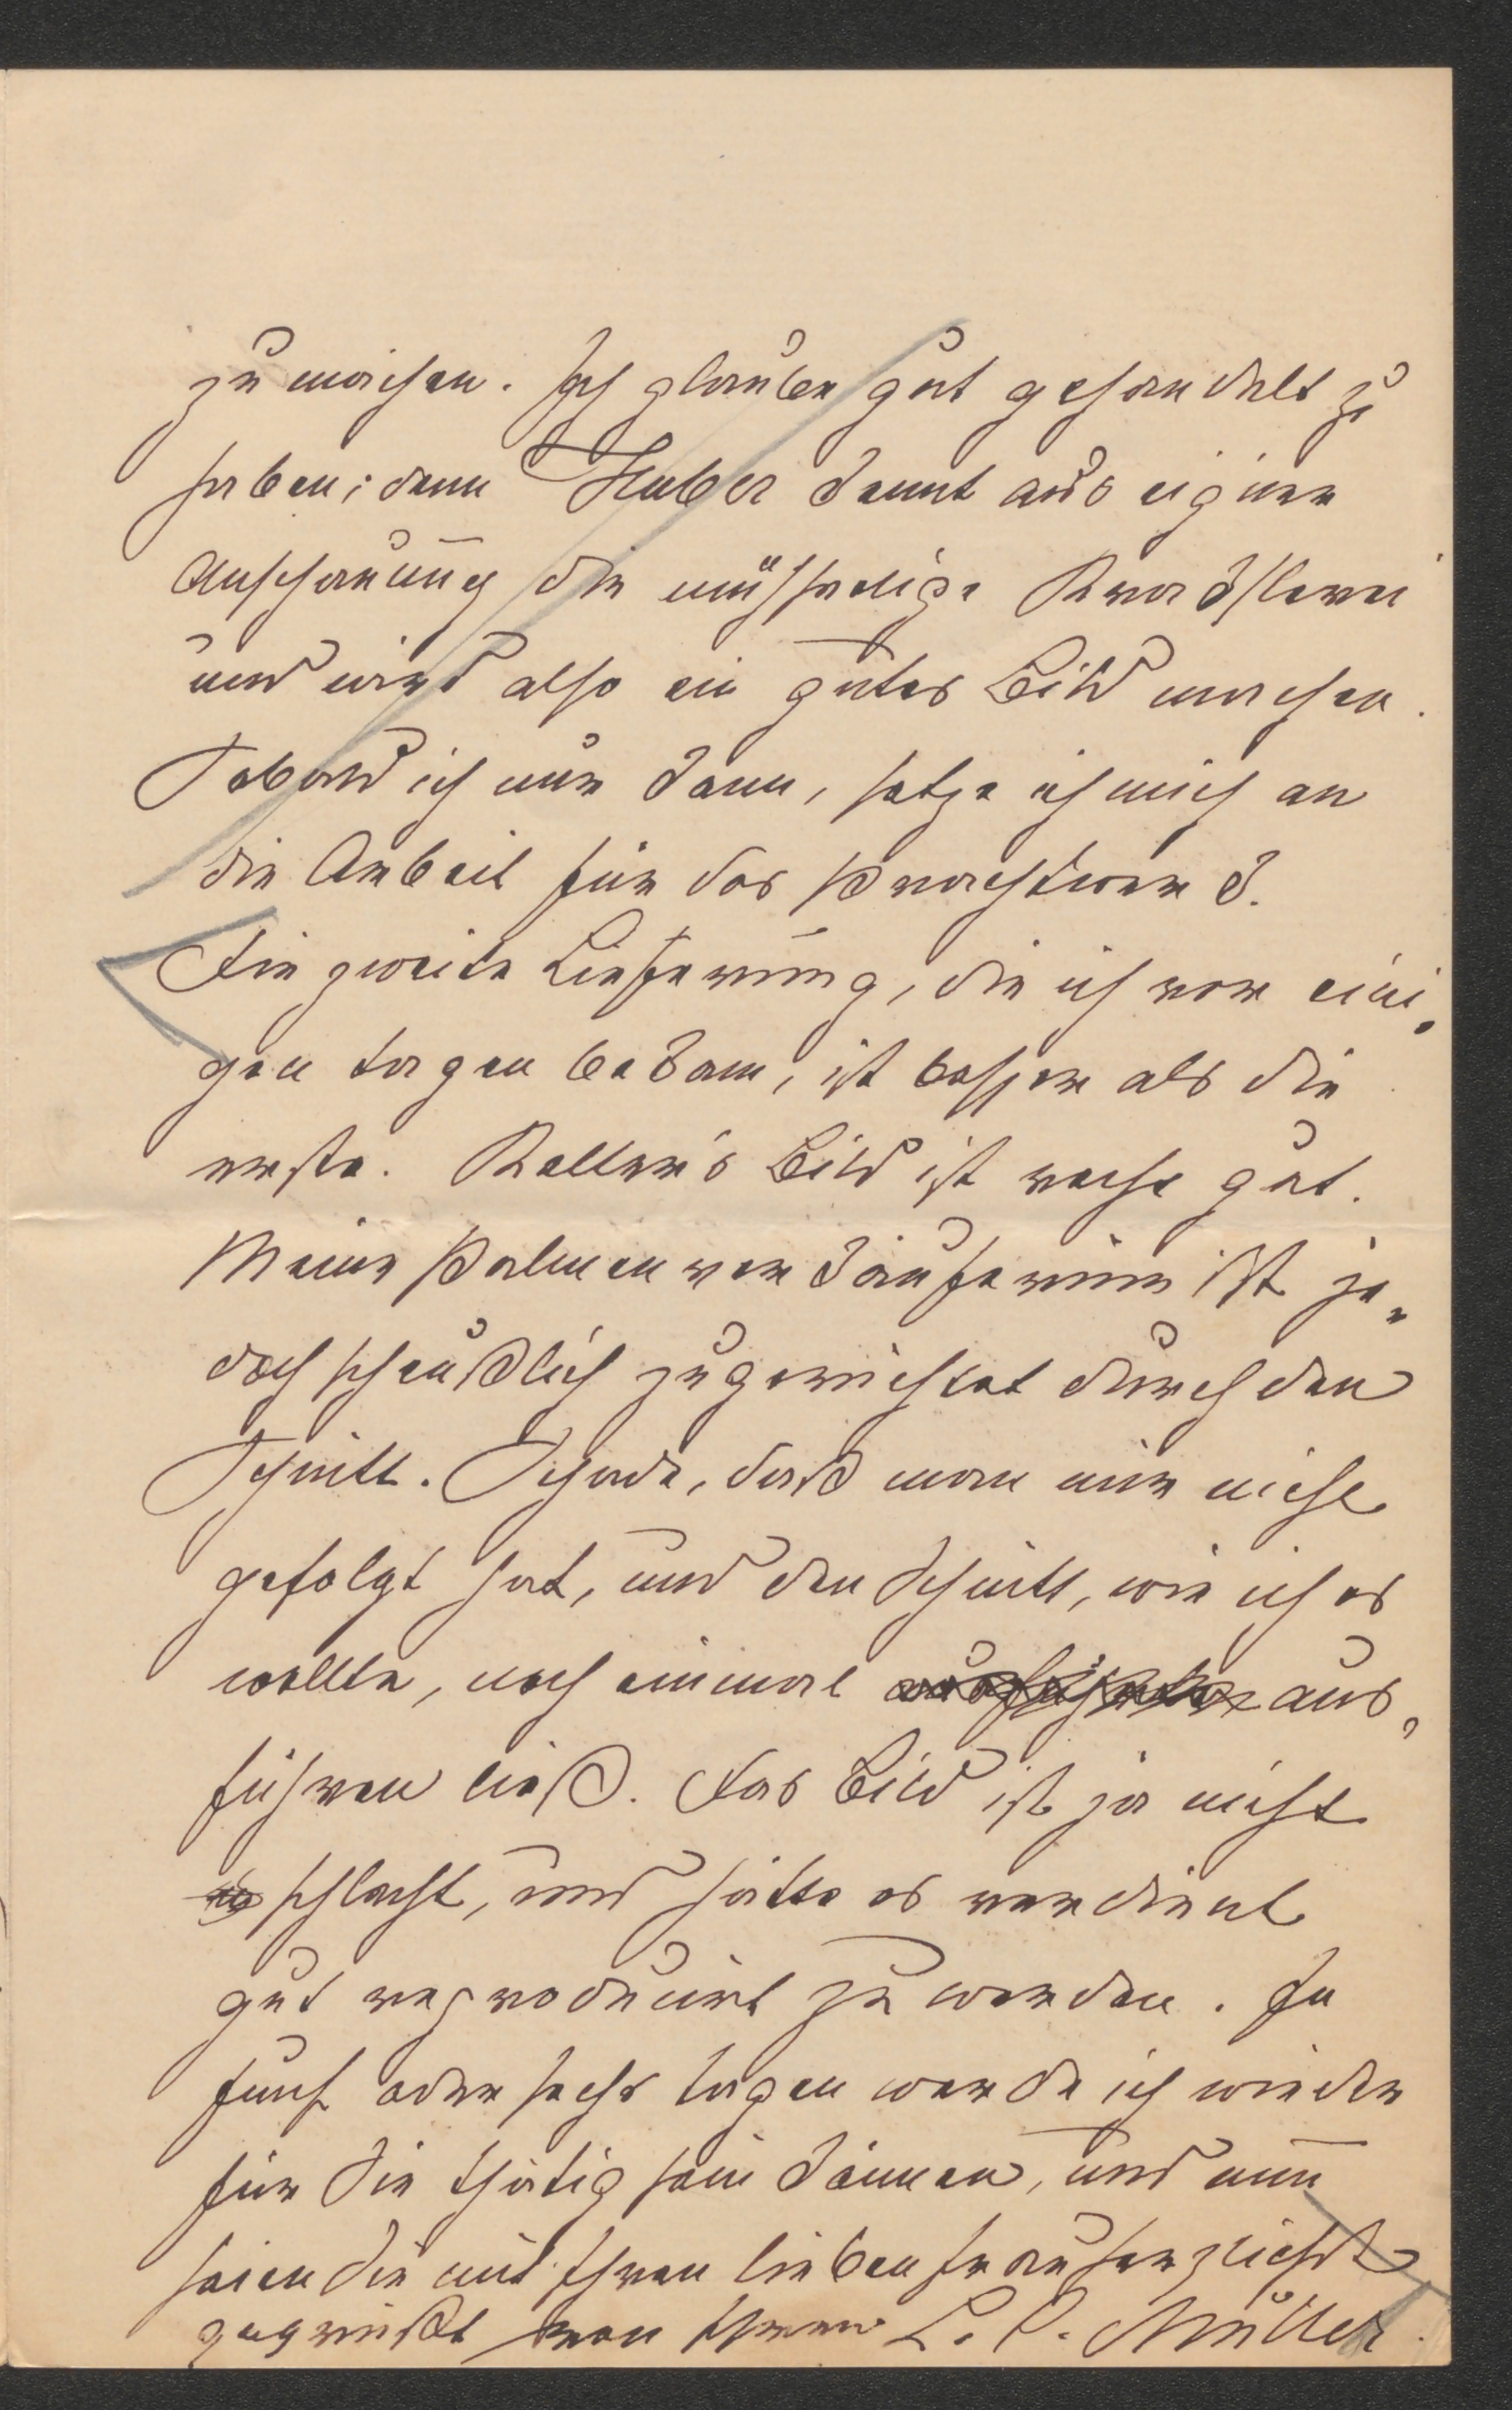 zu machen. Ich glaube gut gehandelt zu
haben; denn Huber kennt aus eigner
Anschauung die mühselige Kraxlerei
und wird also ein gutes Bild machen.
Sobald ich nur kann, setze ich mich an
die Arbeit für das Prachtwerk.
Die zweite Lieferung, die ich vor eini„
gen Tagen bekam, ist besser als die
erste. Keller's Bild ist recht gut.
Meine Palmenverkäuferinn ist je„
doch scheußlich zugerichtet durch den
Schnitt. Schade, daß man mir nicht
gefolgt hat, und den Schnitt, wie ich es
wollte, noch einmal aus„
führen ließ. Das Bild ist ja nicht
schlecht, und hätte es verdient
gut reproducirt zu werden. In
fünf oder sechs Tagen werde ich wieder
für Sie thätig sein können, und nun
seien Sie mit Ihrer lieben Frau herzlichst
gegrüßt von Ihrem L. C. Müller.